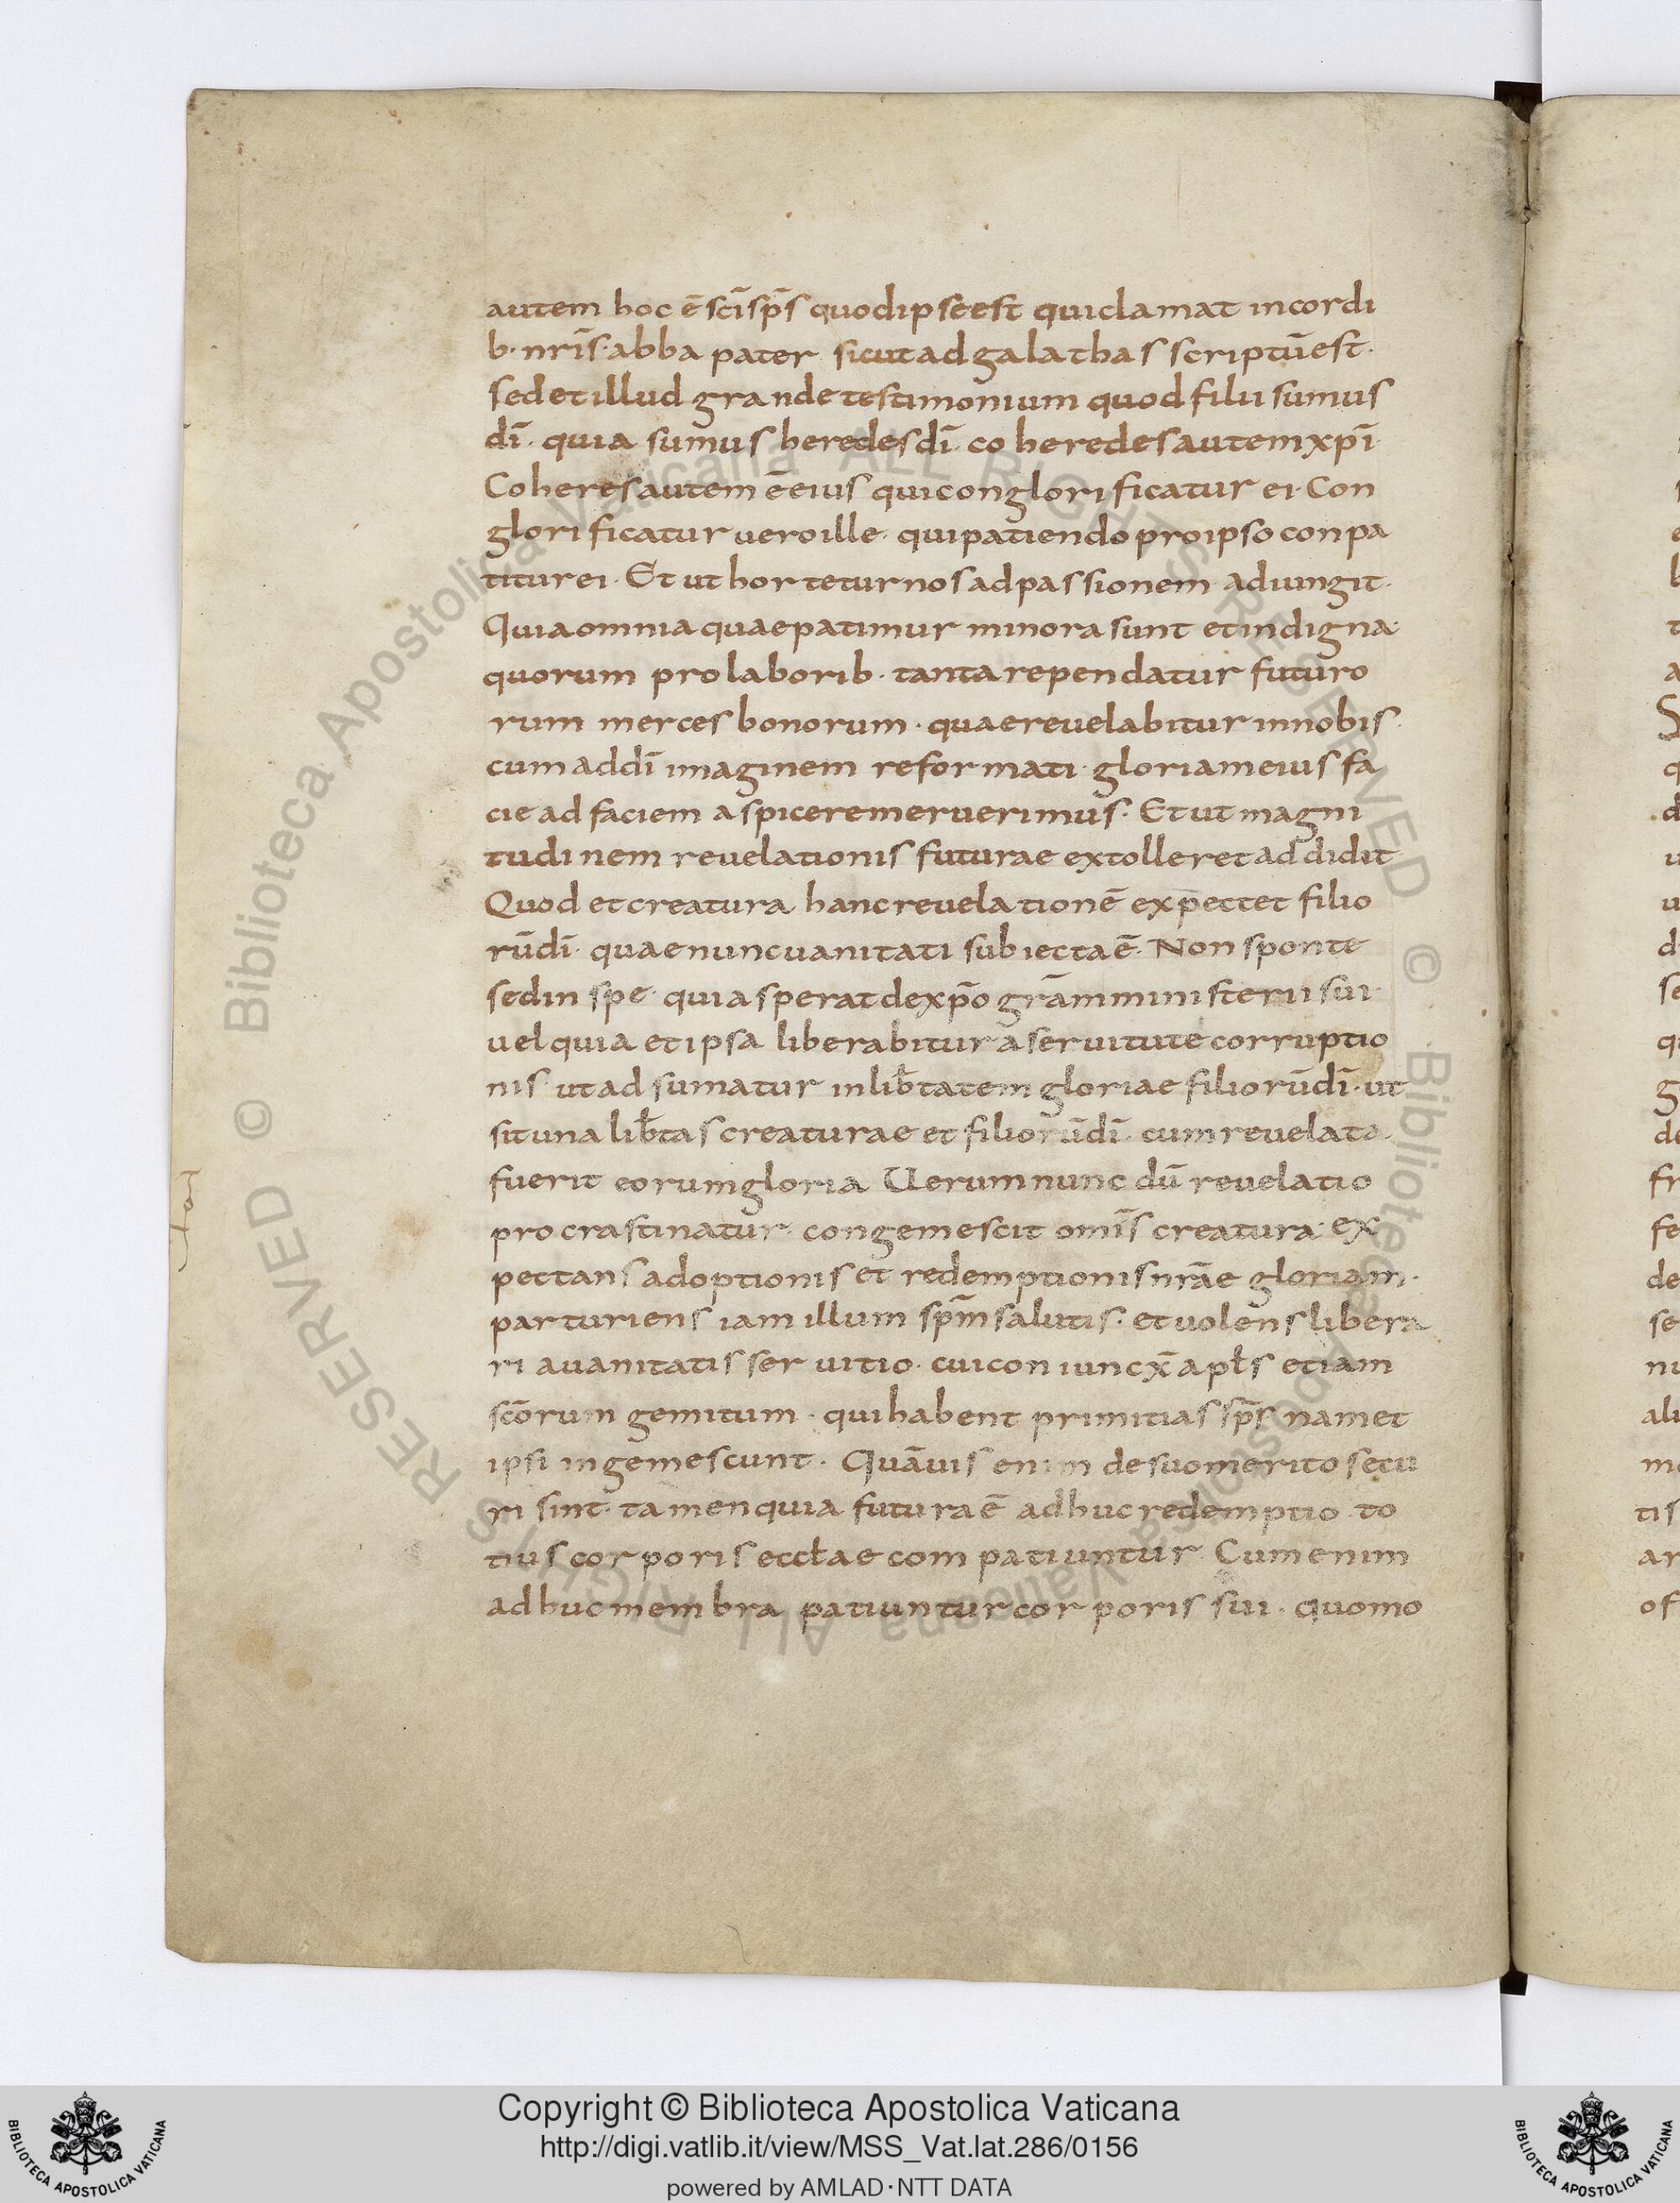 autem hoc ē sc̄i sp̄s quod ipse est qui clamat in cordi
b· nr̄is· abba pater sicut ad galathas scriptū est·
sed et illud grande testimonium quod filii sumus
dī· quia sumus heredes dī· coheredes autem xp̄i
Coheres autem ē eius qui conglorificatur ei· Con
glorificatur vero ille· qui patiendo pro ipso conpa
titur ei· Et ut hortetur nos ad passionem adiungit·
Quia omnia quae patimur minora sunt et indigna·
quorum pro laborib· tanta rependatur futuro
rum merces bonorum· quae reuelabitur in nobis
cum ad dī imaginem reformati· gloriam eius fa
cie ad faciem aspicere meruerimus· Et ut magni
tudinem reuelationis futurae extolleret addidit
Quod et creatura hanc reuelationē exp̄ectet filio
rū dī· quae nunc uanitati subiecta ē· Non sponte
sed in spe· quia sperat de xp̄o gra̅m ministerii sui·
uel quia et ipsa liberabitur a seruitute corruptio
nis· ut adsumatur in lib̄tatem gloriae filiorū dī· ut
sit una lib̄tas creaturae et filiorū dī· cum reuelata
fuerit eorum gloria Uerum nunc dū reuelatio
procrastinatur· congemescit om̄is creatura· ex
pectans adoptionis et redemptionis nr̄ae gloriam·
parturiens iam illum sp̄m salutis· et uolens libera
ri a uanitatis seruitio· cui coniuncx̄ apl̄s etiam
sc̄orum gemitum· qui habent primitias sp̄s nam et
ipsi ingemescunt· Quāuis enim de suo merito secu
ri sint· tamen quia futura ē adhuc redemptio to
tius corporis eccl̄ae compatiuntur Cum enim
adhuc membra patiuntur corporis sui· quomo
Copyright © Biblioteca Apostolica Vaticana
http://digi.vatlib.it/view/MSS_Vat.lat.286/0156
powered by AMLAD·NTT DATA
BIBLIOTECA APOSTOLICA VATICANA
BIBLIOTECA APOSTOLICA VATICANA
© Biblioteca Apostolica Vaticana ALL RIGHTS RESERVED © Biblioteca Apostolica Vaticana ALL RIGHTS RESERVED